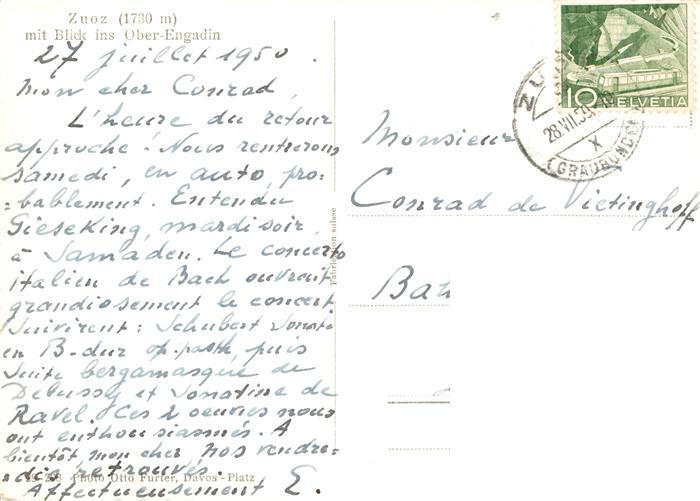 Zuoz (1730 m)
mit Blick ins Ober-Engadin
27 juillet 1950.
Mon cher Conrad,
L'heure du retour
approche! Nous rentrerons
samedi, en auto, pro-
-bablement. Entendu
Gieseking, mardi soir,
à Samaden. Le concerto
italien de Bach ouvrait
grandiosement le concert
Suivirent: Schubert Sonate
en B-dur op. posth, puis
Suite bergamasque de
Debussy et Sonatine de
Ravel. Ces 2 oeuvres nous
ont enthousiasmés. A
bientôt mon cher nos vendre-
-dis retrouvés.
Photo Otto Furter, Davos-Platz
Affectueusement E.
Fabrication suisse
10 HELVETIA
28.VII.50
X
(GRAUBÜNDEN)
Monsieur
Conrad de Vietinghoff